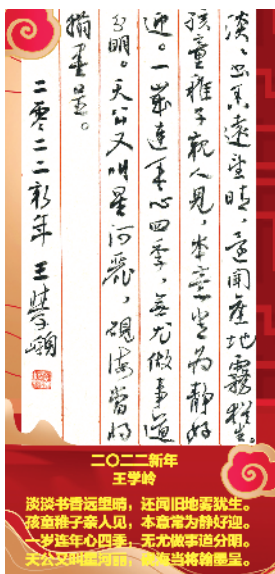 淡淡书香遠望晴，還聞舊地霧猶生。
孩童稚子親人見，本意常为静好
迎。一歲連年心四季，無尤做事道
分明。天公又叫星河麗，硯海當將
翰墨呈。
二零二二新年 王學嶺
二〇二二新年
王学岭
淡淡书香远望晴，还闻旧地雾犹生。
孩童稚子亲人见，本意常为静好迎。
一岁连年心四季，无尤做事道分明。
天公又叫星河丽，砚海当将翰墨呈。